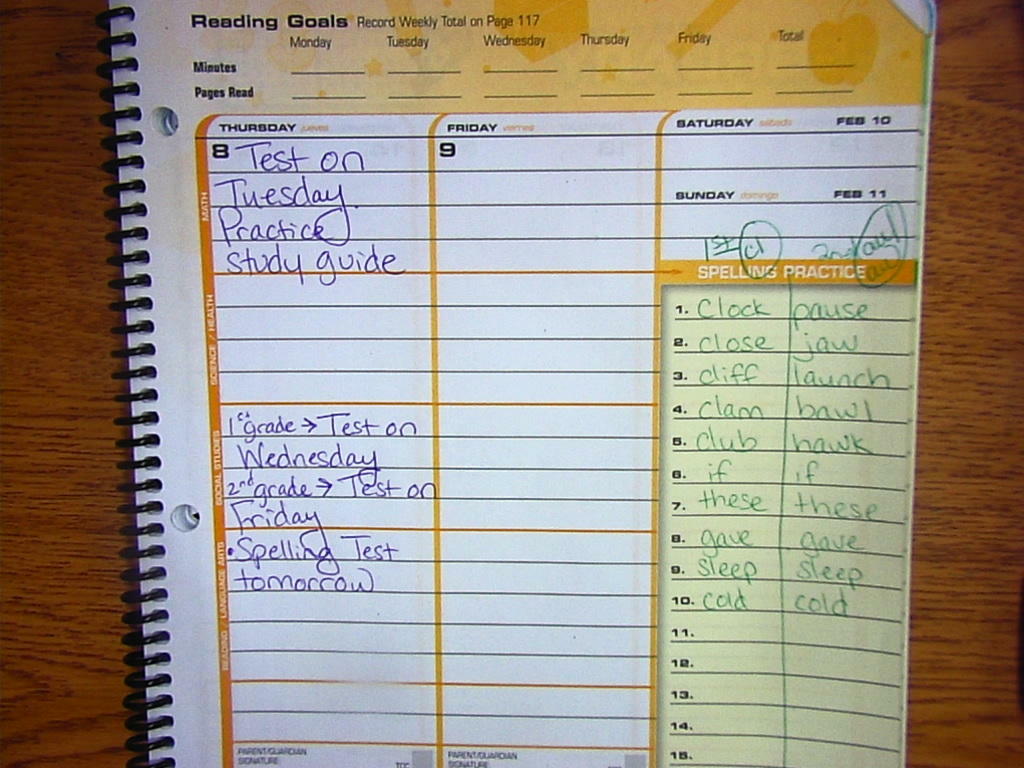 Reading Goals Record Weekly Total on Page 117
Monday Tuesday Wednesday Thursday Friday Total
Minutes
Pages Read
THURSDAY jueves
8 Test on
Tuesday.
Practice
study guide
1st grade → Test on
Wednesday
2nd grade → Test on
Friday
• Spelling Test
tomorrow
MATH
SCIENCE / HEALTH
SOCIAL STUDIES
READING / LANGUAGE ARTS
PARENT/GUARDIAN
SIGNATURE
FRIDAY viernes
9
PARENT/GUARDIAN
SIGNATURE
SATURDAY sábado FEB 10
SUNDAY domingo FEB 11
1st cl 2nd au/
aw
SPELLING PRACTICE
1. Clock pause
2. close jaw
3. cliff launch
4. clam bawl
5. club hawk
6. if if
7. these these
8. gave gave
9. sleep sleep
10. cold cold
11.
12.
13.
14.
15.